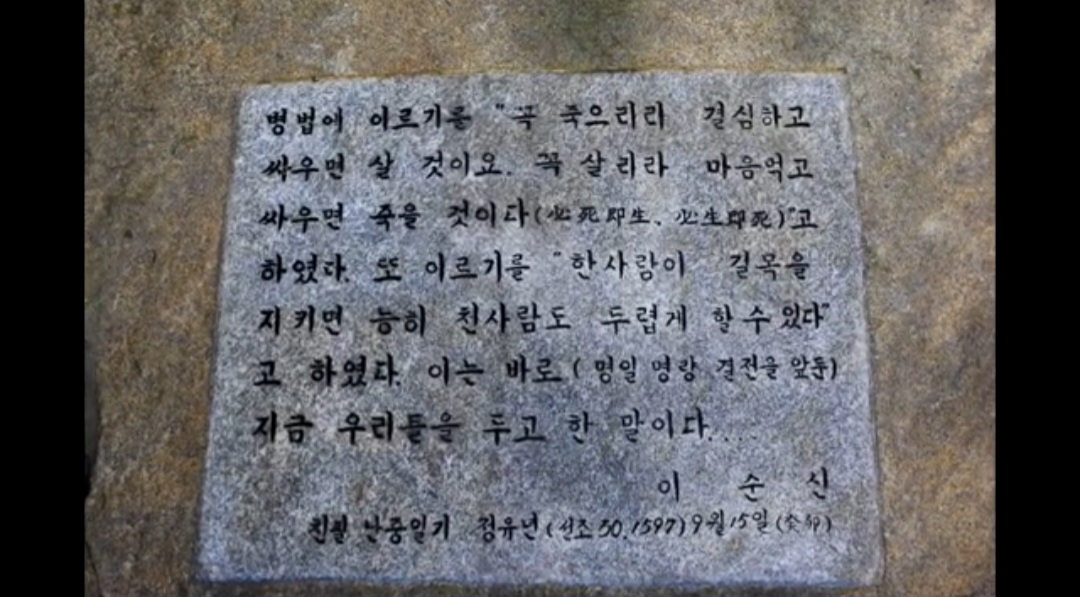 병법에 이르기를 "꼭 죽으리라 결심하고
싸우면 살 것이요. 꼭 살리라 마음먹고
싸우면 죽을 것이다(必死即生, 必生即死)"고
하였다. 또 이르기를 "한사람이 길목을
지키면 능히 천사람도 두렵게 할 수 있다"
고 하였다. 이는 바로 (명일 명랑 결전을 앞둔)
지금 우리들을 두고 한 말이다....
이 순 신
친필 난중일기 정유년(선조 30.1597)9월15일(癸卯)